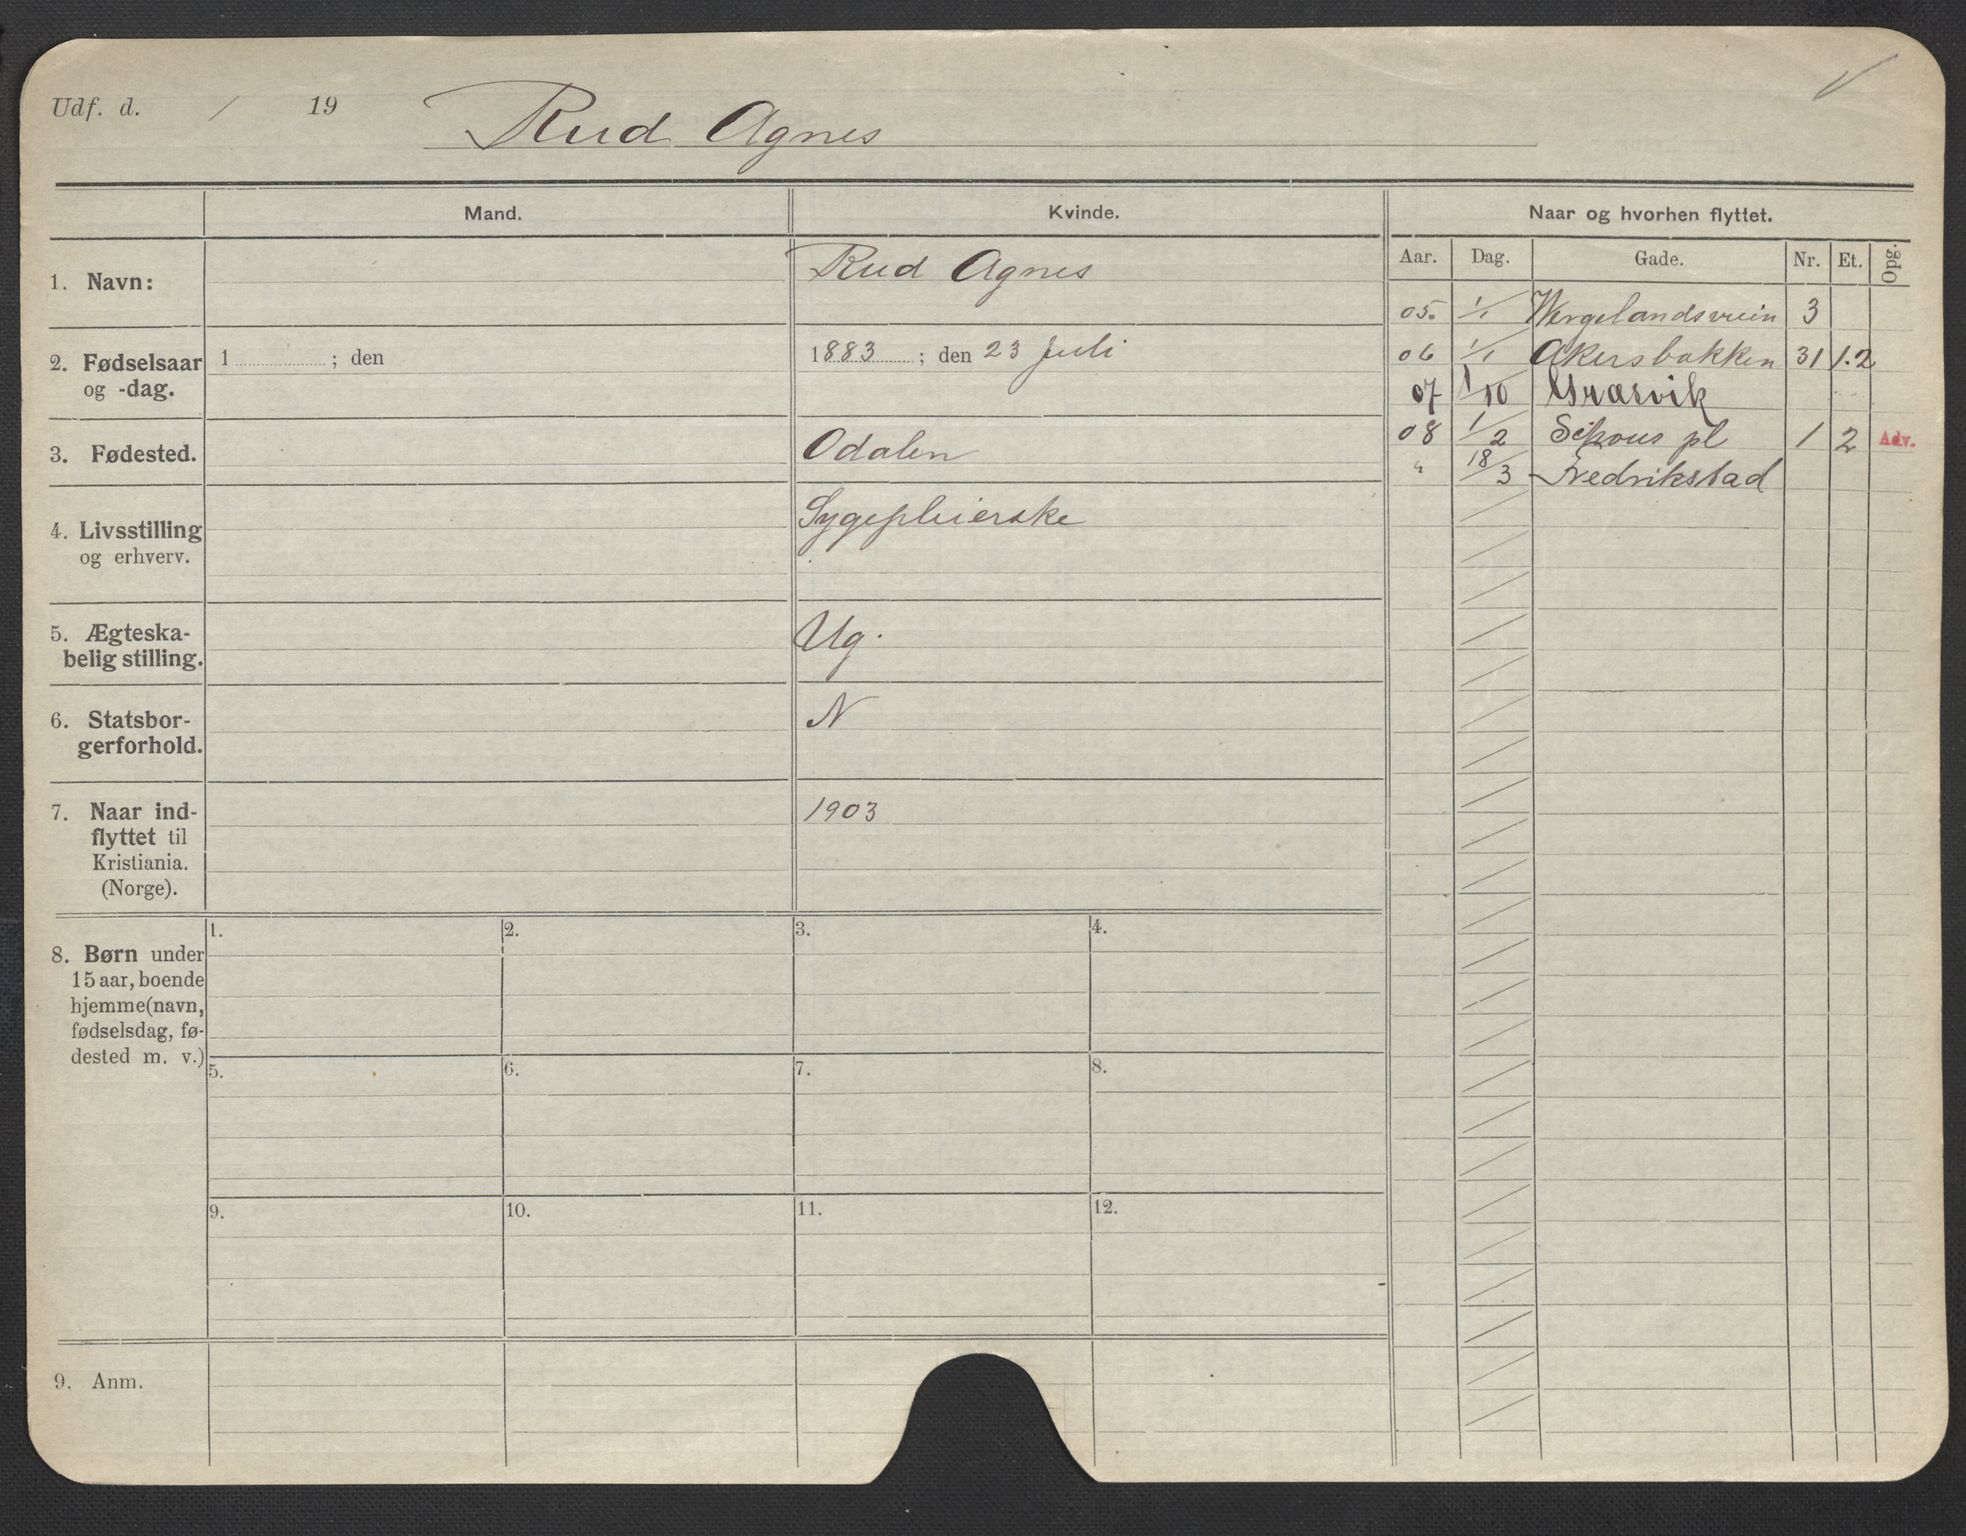 Udf. d. / 19 Rud Agnes
Mand. Kvinde. Naar og hvorhen flyttet.
Aar. Dag. Gade. Nr. Et. Opg.
1. Navn: Rud Agnes
2. Fødselsaar
og -dag.
1 ; den
1883 ; den 23 Juli
3. Fødested. Odalen
4. Livsstilling
og erhverv.
Sygepleierske
5. Ægteska-
belig stilling.
Ug.
6. Statsbor-
gerforhold.
N
7. Naar ind-
flyttet til
Kristiania.
(Norge).
1903
05. 1/1 Wergelandsveien 3
06 1/1 Akersbakken 31 1.2
07 1/10 Græsvik
08 1/2 Schous pl 1 2 Adv.
" 18/3 Fredrikstad
8. Børn under
15 aar, boende
hjemme (navn,
fødselsdag, fø-
dested m. v.)
1. 2. 3. 4.
5. 6. 7. 8.
9. 10. 11. 12.
9. Anm.